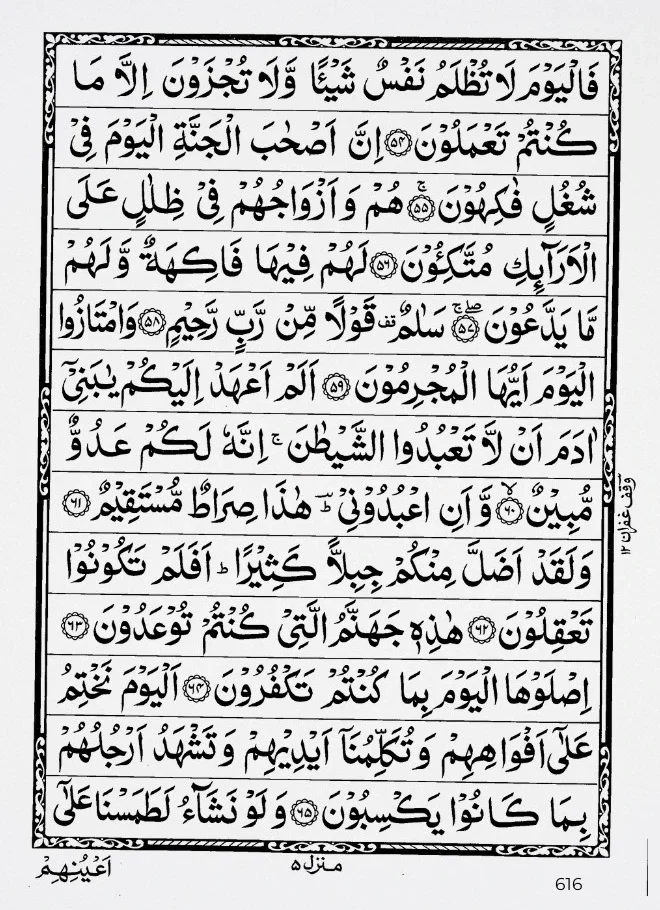 فَالْيَوْمَ لَا تُظْلَمُ نَفْسٌ شَيْـًٔا وَّلَا تُجْزَوْنَ اِلَّا مَا
كُنْتُمْ تَعْمَلُوْنَ ﴿۵۴﴾ اِنَّ اَصْحٰبَ الْجَنَّةِ الْيَوْمَ فِيْ
شُغُلٍ فٰكِهُوْنَ ﴿۵۵﴾ۚ هُمْ وَاَزْوَاجُهُمْ فِيْ ظِلٰلٍ عَلَى
الْاَرَآئِكِ مُتَّكِـُٔوْنَ ﴿۵۶﴾ لَهُمْ فِيْهَا فَاكِهَةٌ وَّلَهُمْ
مَّا يَدَّعُوْنَ ﴿۵۷﴾ۚۖ سَلٰمٌ قف قَوْلًا مِّنْ رَّبٍّ رَّحِيْمٍ ﴿۵۸﴾ وَامْتَازُوا
الْيَوْمَ اَيُّهَا الْمُجْرِمُوْنَ ﴿۵۹﴾ اَلَمْ اَعْهَدْ اِلَيْكُمْ يٰبَنِيْٓ
اٰدَمَ اَنْ لَّا تَعْبُدُوا الشَّيْطٰنَ ۚ اِنَّهٗ لَكُمْ عَدُوٌّ
مُّبِيْنٌ ﴿۶۰﴾ۙ وَّاَنِ اعْبُدُوْنِيْ ؕ هٰذَا صِرَاطٌ مُّسْتَقِيْمٌ ﴿۶۱﴾
وَلَقَدْ اَضَلَّ مِنْكُمْ جِبِلًّا كَثِيْرًا ؕ اَفَلَمْ تَكُوْنُوْا
تَعْقِلُوْنَ ﴿۶۲﴾ هٰذِهٖ جَهَنَّمُ الَّتِيْ كُنْتُمْ تُوْعَدُوْنَ ﴿۶۳﴾
اِصْلَوْهَا الْيَوْمَ بِمَا كُنْتُمْ تَكْفُرُوْنَ ﴿۶۴﴾ اَلْيَوْمَ نَخْتِمُ
عَلٰٓى اَفْوَاهِهِمْ وَتُكَلِّمُنَآ اَيْدِيْهِمْ وَتَشْهَدُ اَرْجُلُهُمْ
بِمَا كَانُوْا يَكْسِبُوْنَ ﴿۶۵﴾ وَلَوْ نَشَآءُ لَطَمَسْنَا عَلٰٓى
وقف غفران ۱۲
اَعْيُنِهِمْ
منزل ۵
616